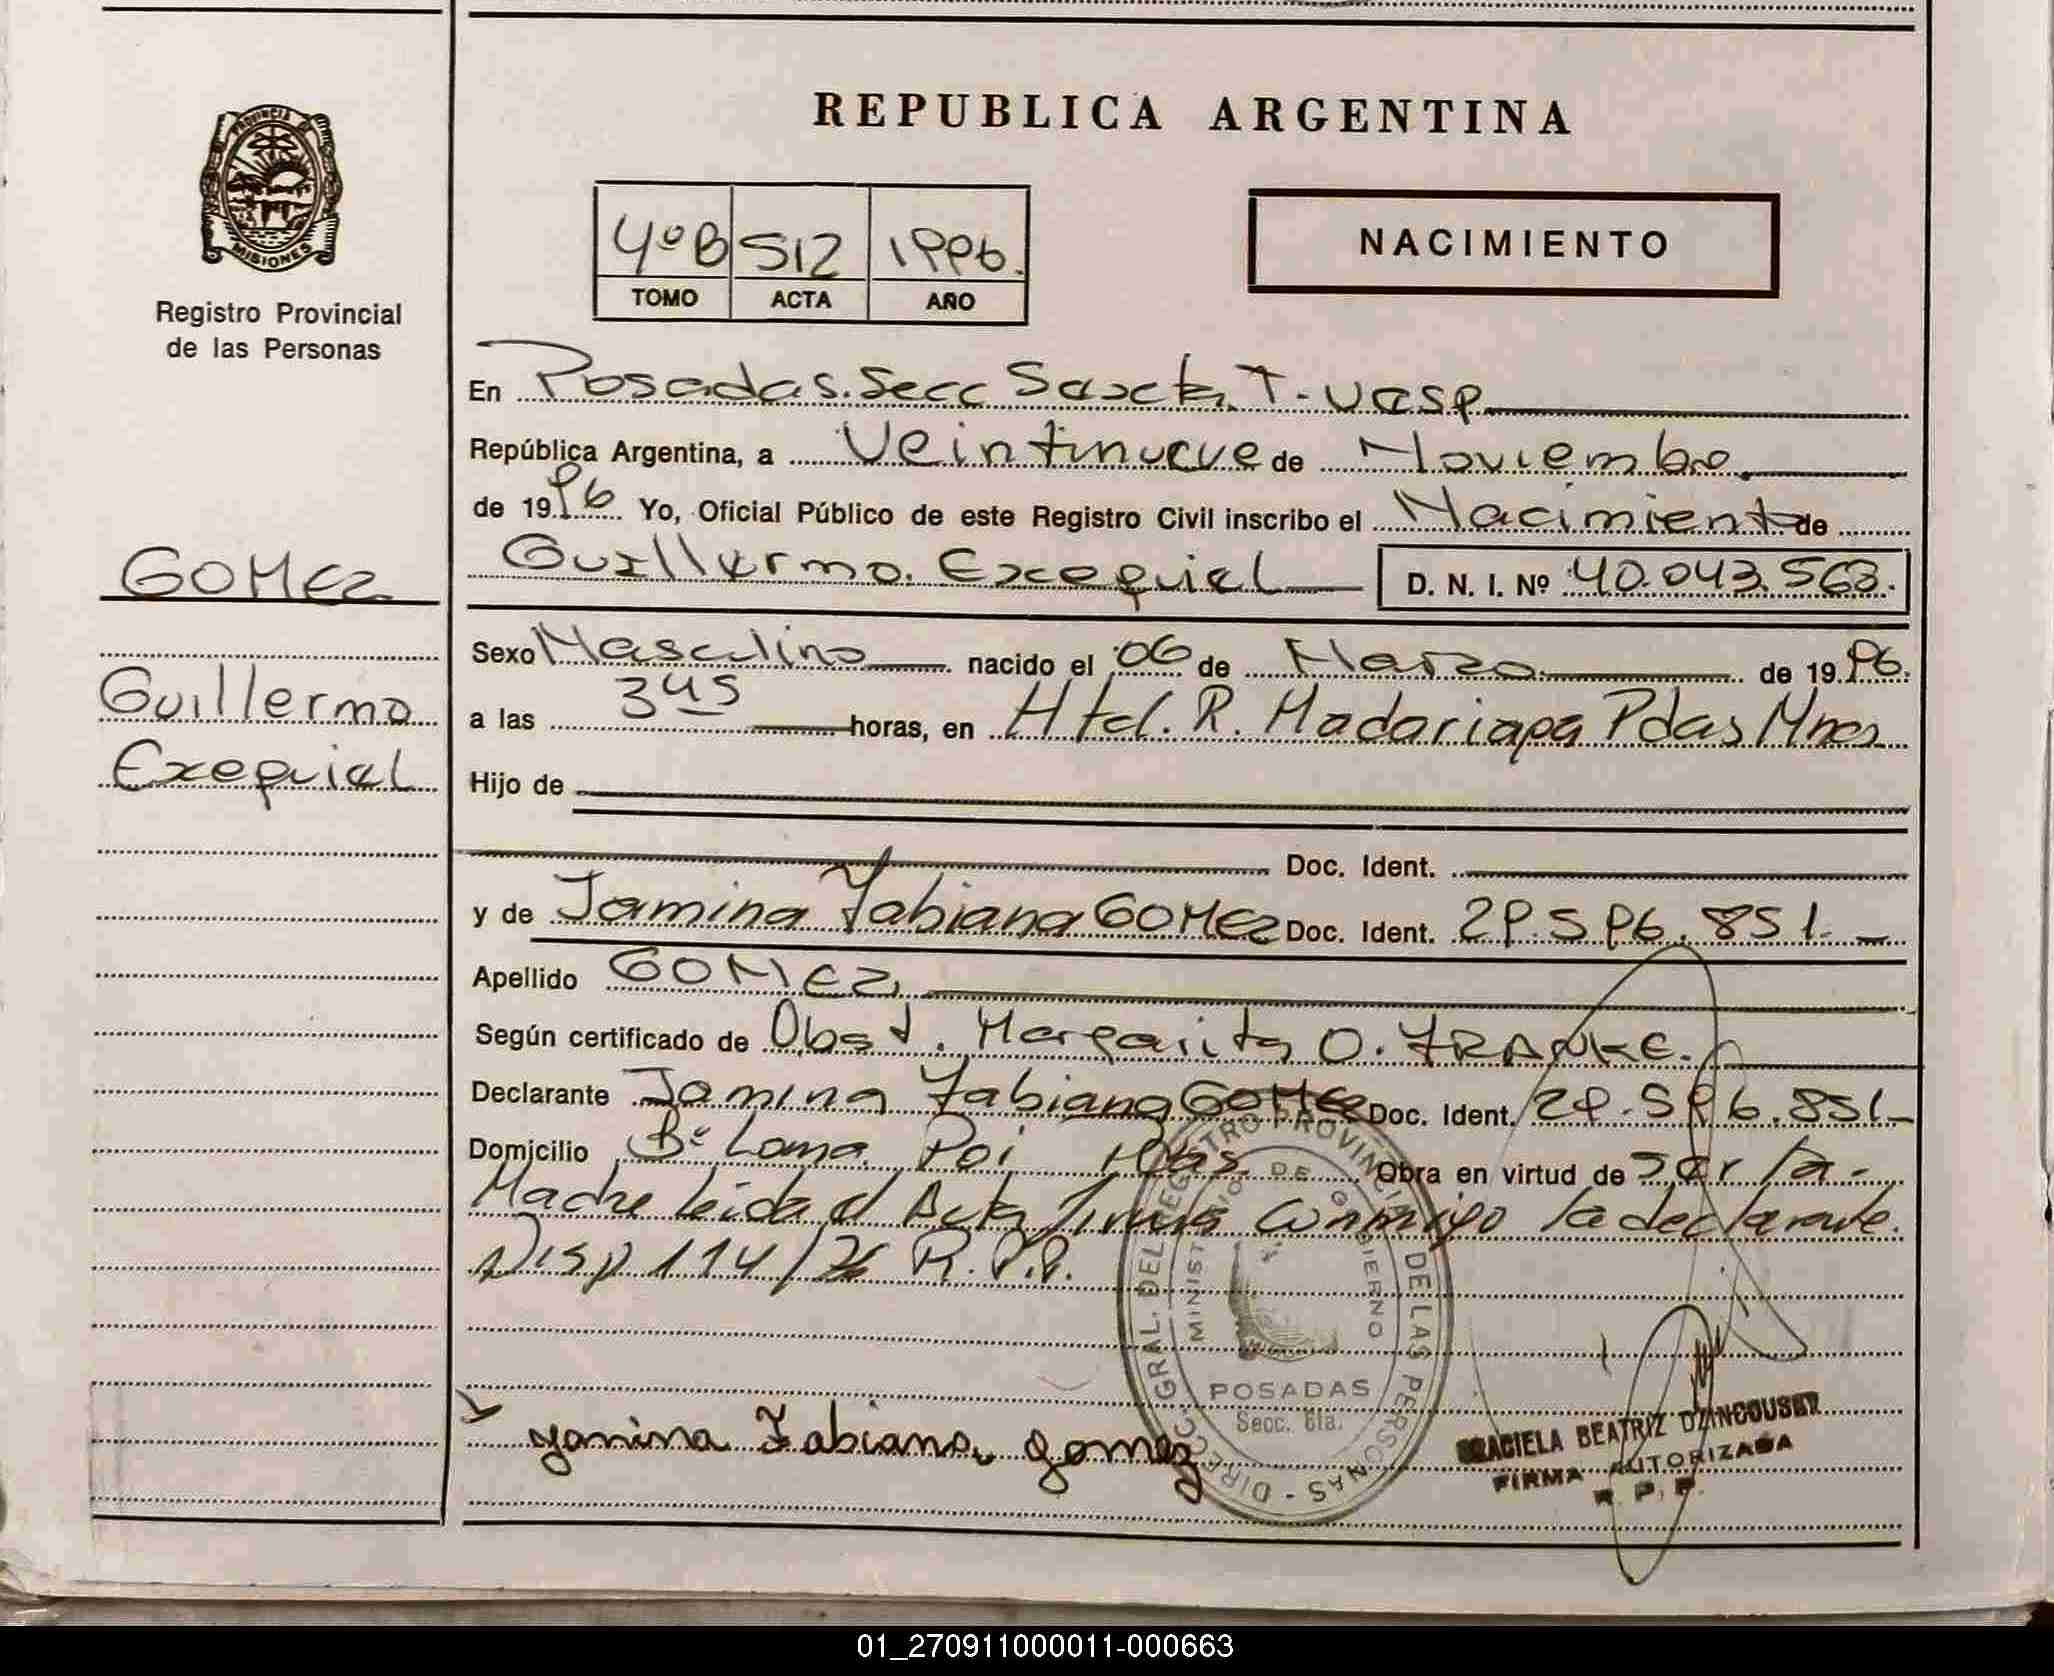 REPUBLICA ARGENTINA
PROVINCIA DE
MISIONES
Registro Provincial
de las Personas
4ºB 512 1996.
TOMO ACTA AÑO
NACIMIENTO
En Posadas. Secc Sexta. T.
República Argentina, a Veintinueve de Noviembre.
de 1996 Yo, Oficial Público de este Registro Civil inscribo el Nacimiento de
Guillermo. Exequiel D. N. I. Nº 40.043.563.
GOMEZ
Guillermo
Exequiel
Sexo Masculino nacido el 06 de Marzo de 1996.
a las 3 45 horas, en Htal. R. Madariaga Pdas Mnes
Hijo de
Doc. Ident.
y de Jamina Fabiana GOMEZ Doc. Ident. 29.596.851.
Apellido GOMEZ.
Según certificado de Obst. Margarita O. FRANKE.
Declarante Jamina Fabiana GOMEZ Doc. Ident. 29.596.851
Domicilio Bº Loma Poi Pdas. Obra en virtud de ser la
Madre leida el Acta firma Conmigo la declarante.
Disp 114/ R.P.P.
DIRECC. GRAL. DEL REGISTRO PROVINCIAL DE LAS PERSONAS
MINISTERIO DE GOBIERNO
POSADAS
Secc. 6ta.
yanina Fabiana gomez
GRACIELA BEATRIZ DZINCOUSKY
FIRMA AUTORIZADA
R. P. P.
01_270911000011-000663